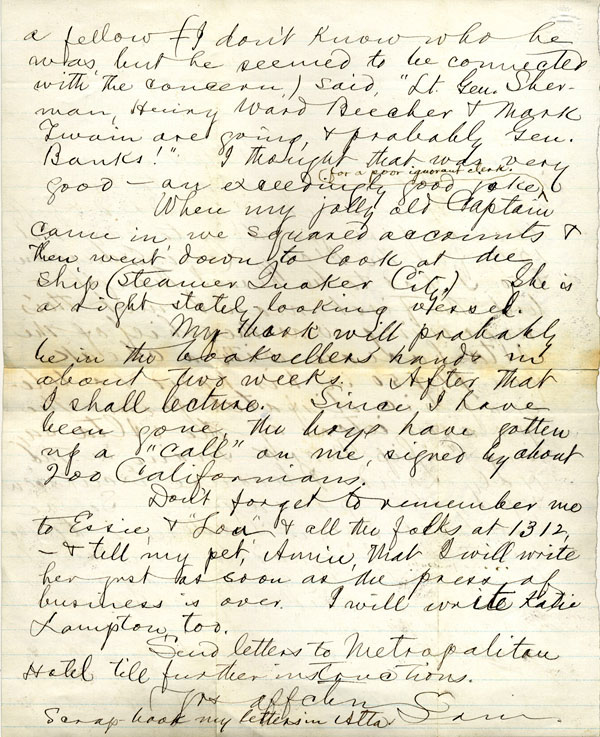 a fellow (I don't know who he
was, but he seemed to be connected
with the concern,) said, "Lt. Gen. Sher-
man, Henry Ward Beecher & Mark
Twain are going, & probably Gen.
Banks!" I thought that was very
good — an exceedingly good joke, (for a poor ignorant clerk.
When my jolly old Captain
came in, we squared accounts &
then went down to look at the
ship (steamer Quaker City.) She is
a right stately-looking vessel.
My book will probably
be in the booksellers hands in
about two weeks. After that
I shall lecture. Since I have
been gone, the boys have gotten
up a "call" on me, signed by about
200 Californians.
Don't forget to remember me
to Essie, & "Lou" & all the folks at 1312,
— & tell my pet, Annie, that I will write
her just as soon as the press of
business is over. I will write Katie
Lampton, too.
Send letters to Metropolitan
Hotel till further instructions.
Yrs affctn
Sam.
Scrap-book my letters in Alta